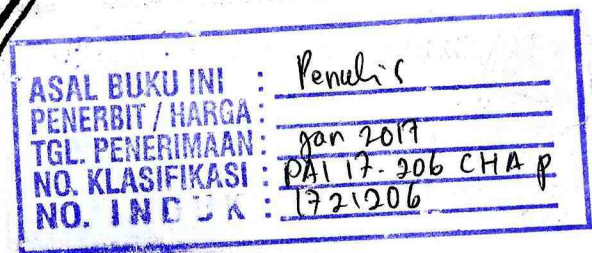 ASAL BUKU INI : Penulis
PENERBIT / HARGA :
TGL. PENERIMAAN : Jan 2017
NO. KLASIFIKASI : PAI 17.206 CHA p
NO. INDUK : 1721206